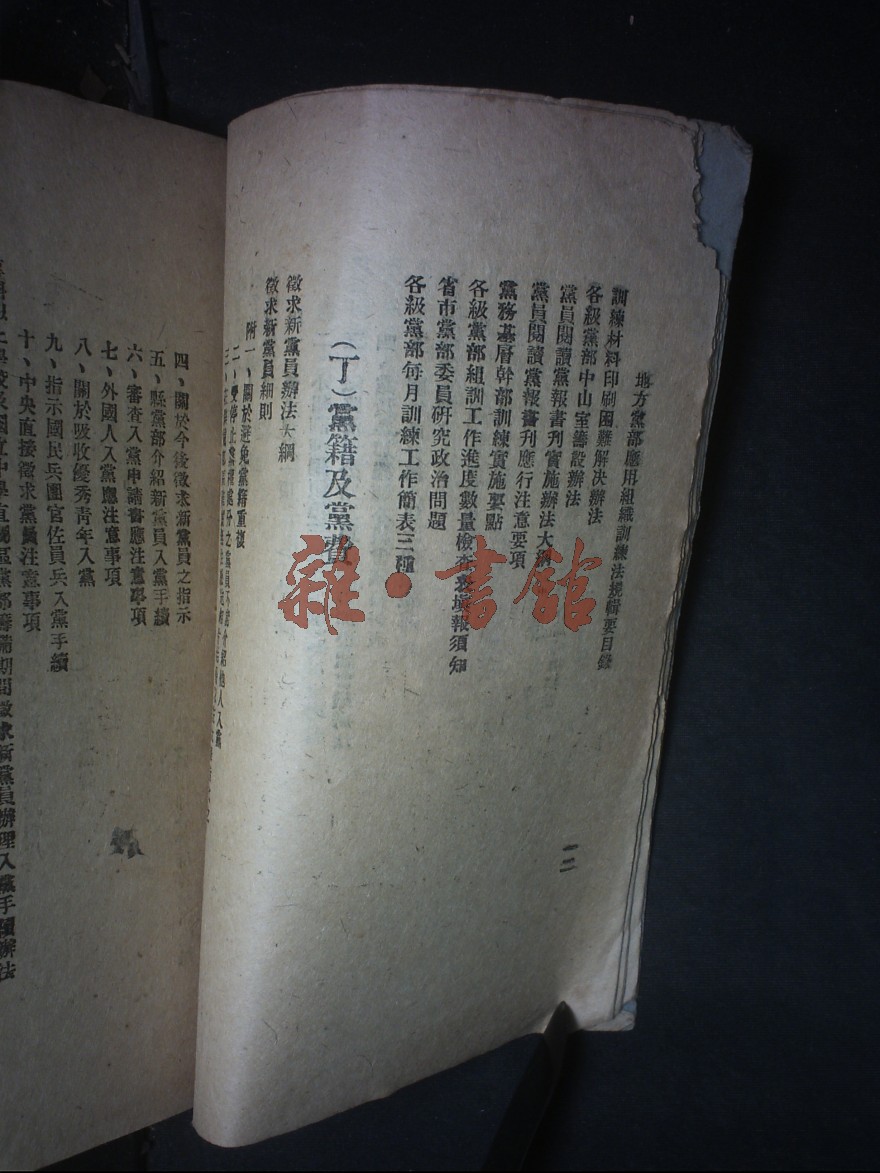 地方黨部應用組織訓練法規輯要目錄
訓練材料印刷困難解決辦法
各級黨部中山室籌設辦法
黨員閱讀黨報書刊實施辦法大綱
黨員閱讀黨報書刊應行注意要項
黨務基層幹部訓練實施要點
各級黨部組訓工作進度數量檢查表填報須知
省市黨部委員研究政治問題
各級黨部每月訓練工作簡表三種
(丁)黨籍及黨費
徵求新黨員辦法大綱
徵求新黨員細則
附一、關於避免黨籍重複
二、受停止黨權處分之黨員不能介紹他人入黨
三、
二
四、關於今後徵求新黨員之指示
五、縣黨部介紹新黨員入黨手續
六、審查入黨申請書應注意事項
七、外國人入黨應注意事項
八、關於吸收優秀青年入黨
九、指示國民兵團官佐員兵入黨手續
十、中央直接徵求黨員注意事項
學校及國立中學直屬區黨部籌備期間徵求新黨員辦理入黨手續辦法
雜·書館